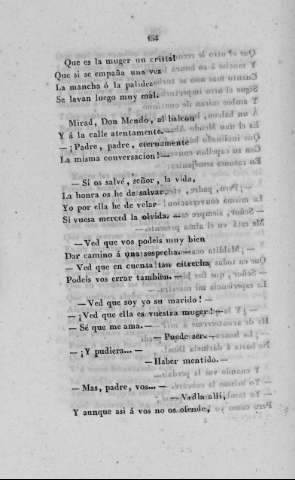 154
Que es la muger un cristal
Que si se empaña una vez
La mancha ó la palidez
Se lavan luego muy mal.
Mirad, Don Mendo, al balcon
Y á la calle atentamente.
— ¡Padre, padre, eternamente
La misma conversacion!—
— Si os salvé, señor, la vida,
La honra os he de salvar,
Yo por ella he de velar
Si vuesa merced la olvida.—
—Ved que vos podeis muy bien
Dar camino á una sospecha.—
— Ved que en cuenta tan estrecha
Podeis vos errar tambien.—
—Ved que soy yo su marido!—
—¡Ved que ella es vuestra muger!—
— Sé que me ama.—
— Puede ser.—
— ¡Y pudiera...—
—Haber mentido.—
— Mas, padre, vos...—
— Vedla allí,
Y aunque asi á vos no os ofende,